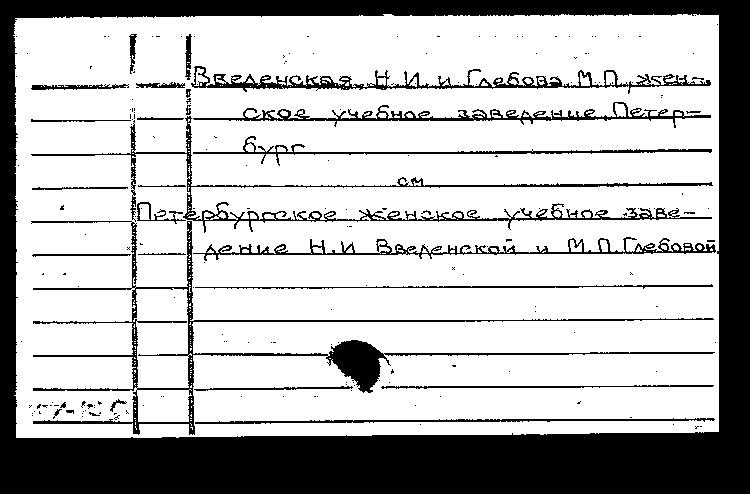 Введенская Н.И. и Глебова М.П., жен-
ское учебное заведение. Петер-
бург
см
Петербургское женское учебное заве-
дение Н.И. Введенской и М.П. Глебовой